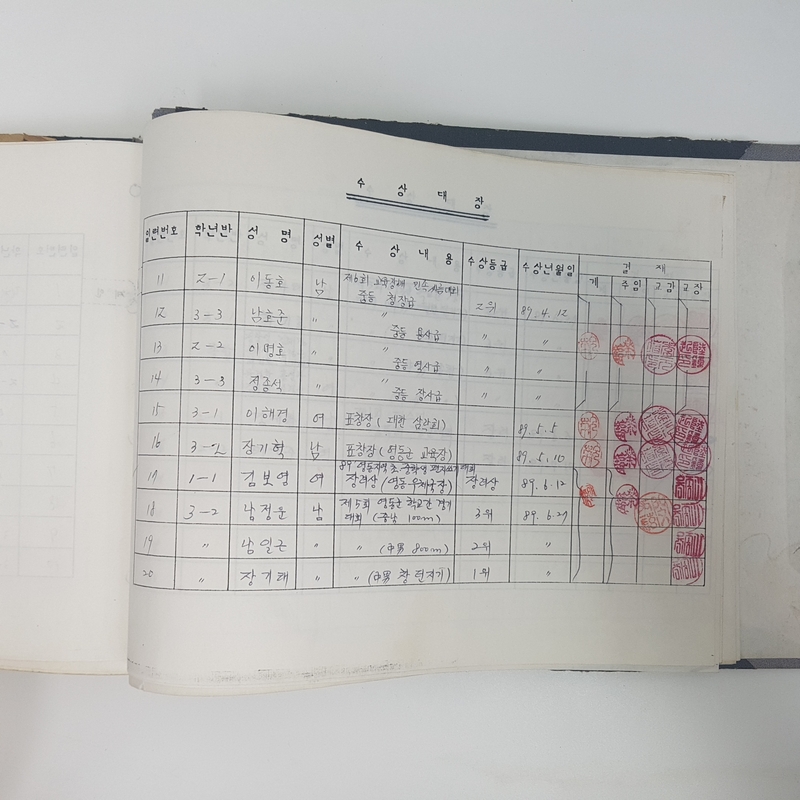 수 상 대 장
일련번호 학년반 성 명 성별 수 상 내 용 수상등급 수상년월일 결 재
계 주임 교감 교장
11 2-1 이동호 남 제6회 교육장배 민속씨름대회
중등 청장급 2위 89. 4. 12
12 3-3 남호준 〃 〃
중등 용사급 〃 〃
13 2-2 이명호 〃 〃
중등 역사급 〃 〃
14 3-3 정종석 〃 〃
중등 장사급 〃 〃
15 3-1 이해경 여 표창장 (대한 삼락회) 89. 5. 5
16 3-2 장기혁 남 표창장 (영동군 교육장) 89. 5. 10
17 1-1 김보영 여 89 영동지역 초·중학생 편지쓰기대회
장려상 (영동우체국장) 장려상 89. 6. 12
18 3-2 남정운 남 제5회 영동군 학교간 경기
대회 (중남 100m) 3위 89. 6. 27
19 〃 남일근 〃 〃 (中男 800m) 2위 〃
20 〃 장기태 〃 〃 (中男 창던지기) 1위 〃